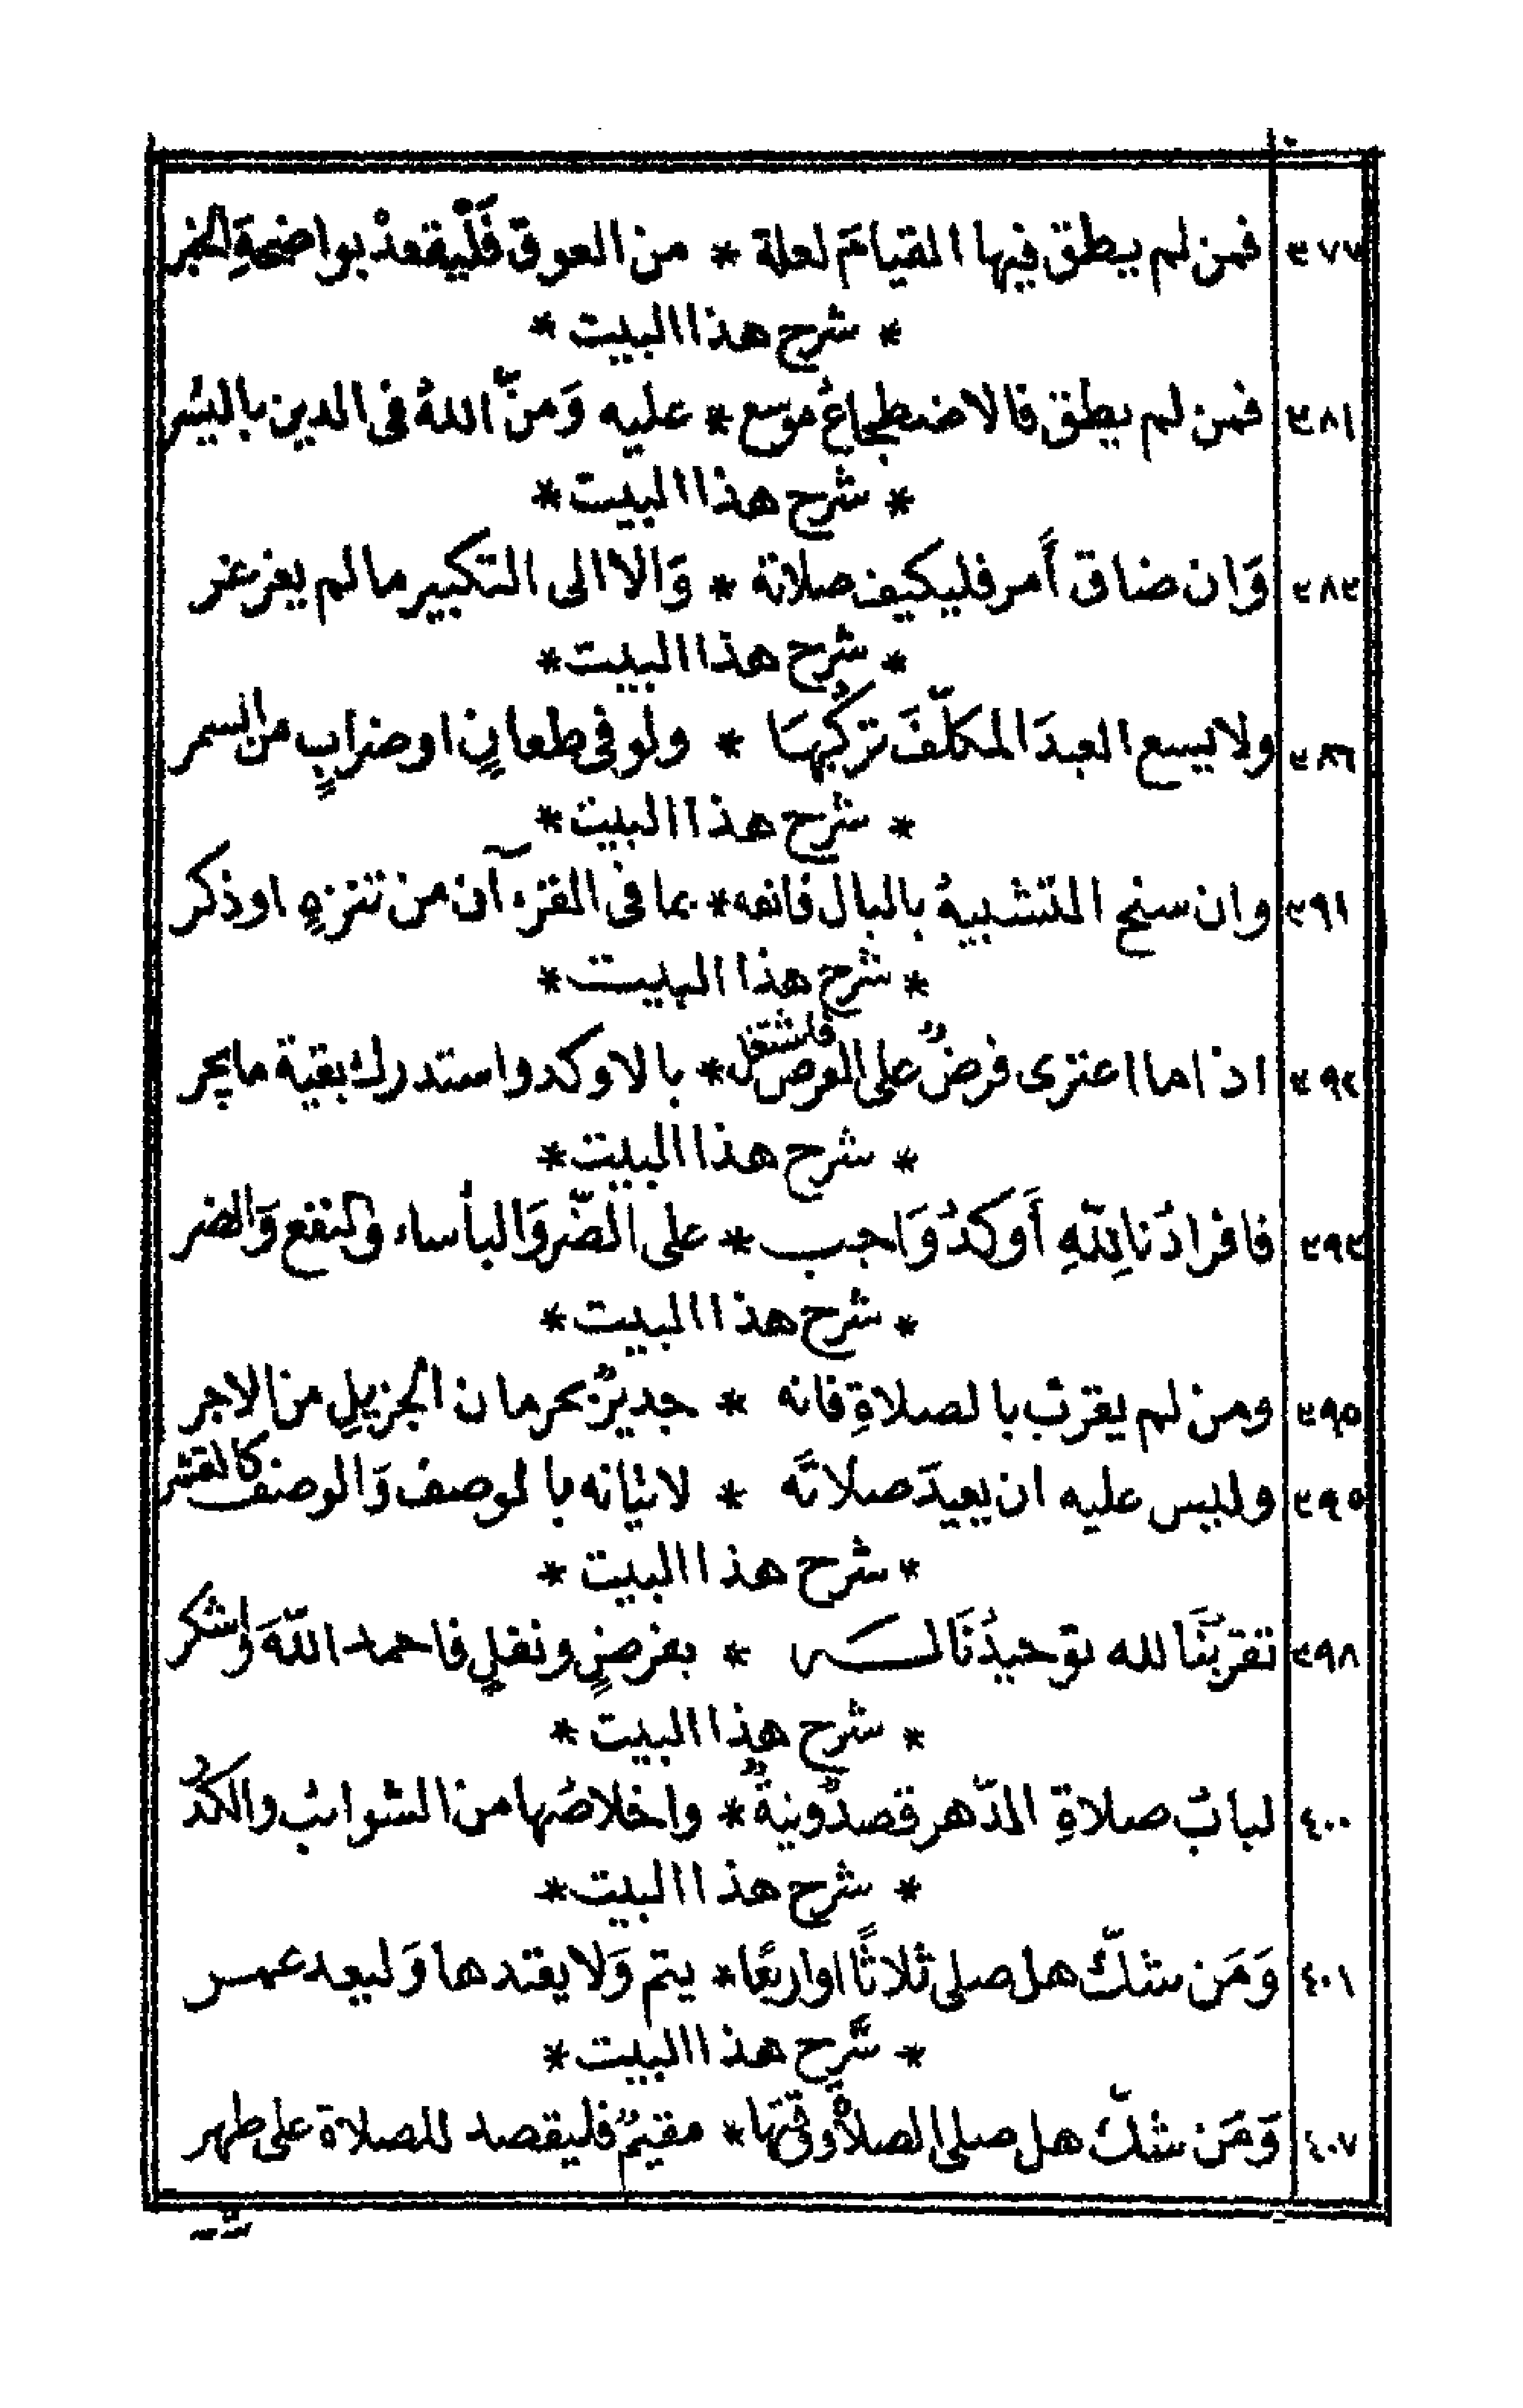 ٣٧٧ فمن لم يطق فيها القيامَ لعلة * من العوق فَلْيقعدْ بواضحةِ الخبر
* شرح هذا البيت *
٣٨١ فمن لم يطق فالاضطجاعُ موسع * عليه وَمنَّ اللهُ فى الدين باليسُر
* شرح هذا البيت *
٣٨٣ وَان ضاق أَمر فليكيف صلاته * وَالا الى التكبير مالم يغرغر
* شرح هذا البيت *
٣٨٦ ولا يسع العبدَ المكلّفَ تركُهَا * ولو فى طعانٍ او ضرابٍ من السمر
* شرح هذا البيت *
٣٩١ وان سنح التشبيهُ بالبال فانفه * بما فى القرءآن من تنزهٍ او ذكر
* شرح هذا البيت *
٣٩٢ اذا ما اعترى فرضٌ على الفرض فليشتغل * بالاوكد واستدرك بقية ما يجر
* شرح هذا البيت *
٣٩٣ فافرادُنا للهِ أَوكدُ وَاجب * على الضّر وَالبأساء والنفع وَالضر
* شرح هذا البيت *
٣٩٥ ومن لم يقرب بالصلاةِ فانه * جديرٌ بحرمان الجزيلِ من الاجر
٣٩٥ وليس عليه ان يعيدَ صلاتَه * لاتيانه بالوصف وَالوصف كالقشر
* شرح هذا البيت *
٣٩٨ تقربُنَا لله توحيدُنَا له * بفرضٍ ونفلٍ فاحمد اللّهَ واشكر
* شرح هذا البيت *
٤٠٠ لبابُ صلاةِ الدّهر قصدٌ ونيةٌ * واخلاصُها من الشوائب والكدُر
* شرح هذا البيت *
٤٠١ وَمَن شكّ هل صلى ثلاثًا او اربعًا * يتم وَلا يعتدها وَليعد
* شرح هذا البيت *
٤٠٧ وَمَن شكّ هل صلى الصلاةَ وقتَها * مقيمٌ فليقصد للصلاة على طهر